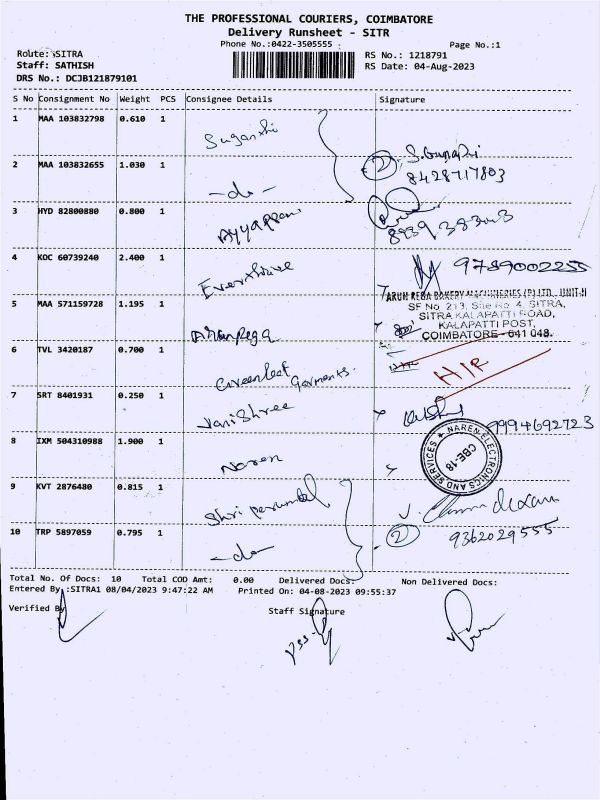 THE PROFESSIONAL COURIERS, COIMBATORE
Delivery Runsheet - SITR
Phone No.:0422-3505555
Page No.:1
Route: SITRA
RS No.: 1218791
Staff: SATHISH
RS Date: 04-Aug-2023
DRS No.: DCJB121879101
S No Consignment No Weight PCS Consignee Details Signature
1 MAA 103832798 0.610 1 Suganthi
2 MAA 103832655 1.030 1 -do- 2
8428717803
3 HYD 82800880 0.800 1 Ayyappan
4 KOC 60739240 2.400 1 9789002255
ARUN REGA BAKERY MACHINERIES (P) LTD., UNIT-II
SF No. 213, Site No. 4, SITRA,
SITRA KALAPATTI ROAD,
KALAPATTI POST,
COIMBATORE - 641 048.
5 MAA 571159728 1.195 1 Arunrega
6 TVL 3420187 0.700 1 Greenleaf Garments. H/R
7 SRT 8401931 0.250 1 Vani Shree 9994692723
8 IXM 504310988 1.900 1 Naren
NAREN ELECTRONICS AND SERVICES
CBE-18
9 KVT 2876480 0.815 1 Shri perumal
10 TRP 5897059 0.795 1 -do- 2 9362029555
Total No. Of Docs: 10 Total COD Amt: 0.00 Delivered Docs: Non Delivered Docs:
Entered By :SITRA1 08/04/2023 9:47:22 AM Printed On: 04-08-2023 09:55:37
Verified By Staff Signature